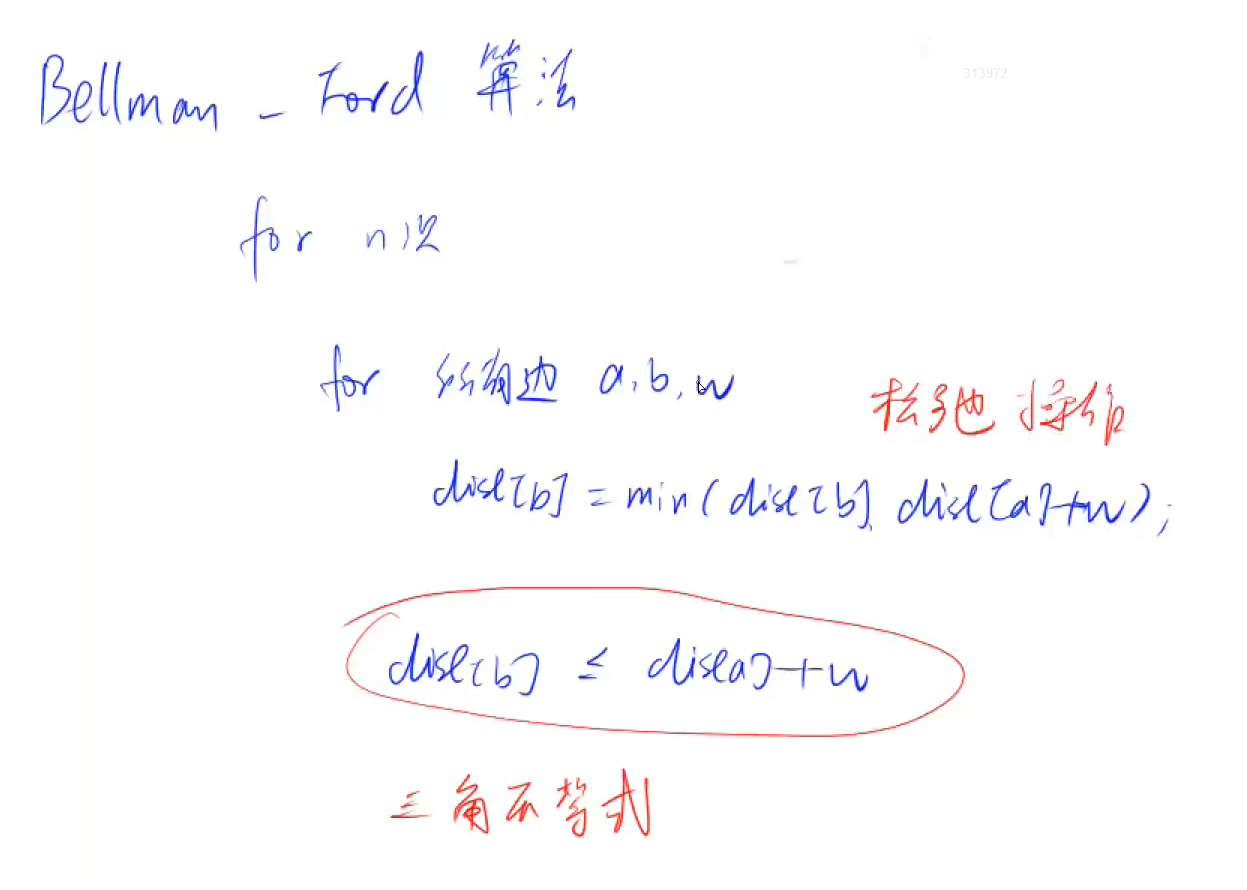 Bellman - Ford 算法
313972
for n次
for 所有边 a,b,w
松弛操作
dist[b] = min(dist[b], dist[a]+w);
dist[b] ≤ dist[a]+w
三角不等式